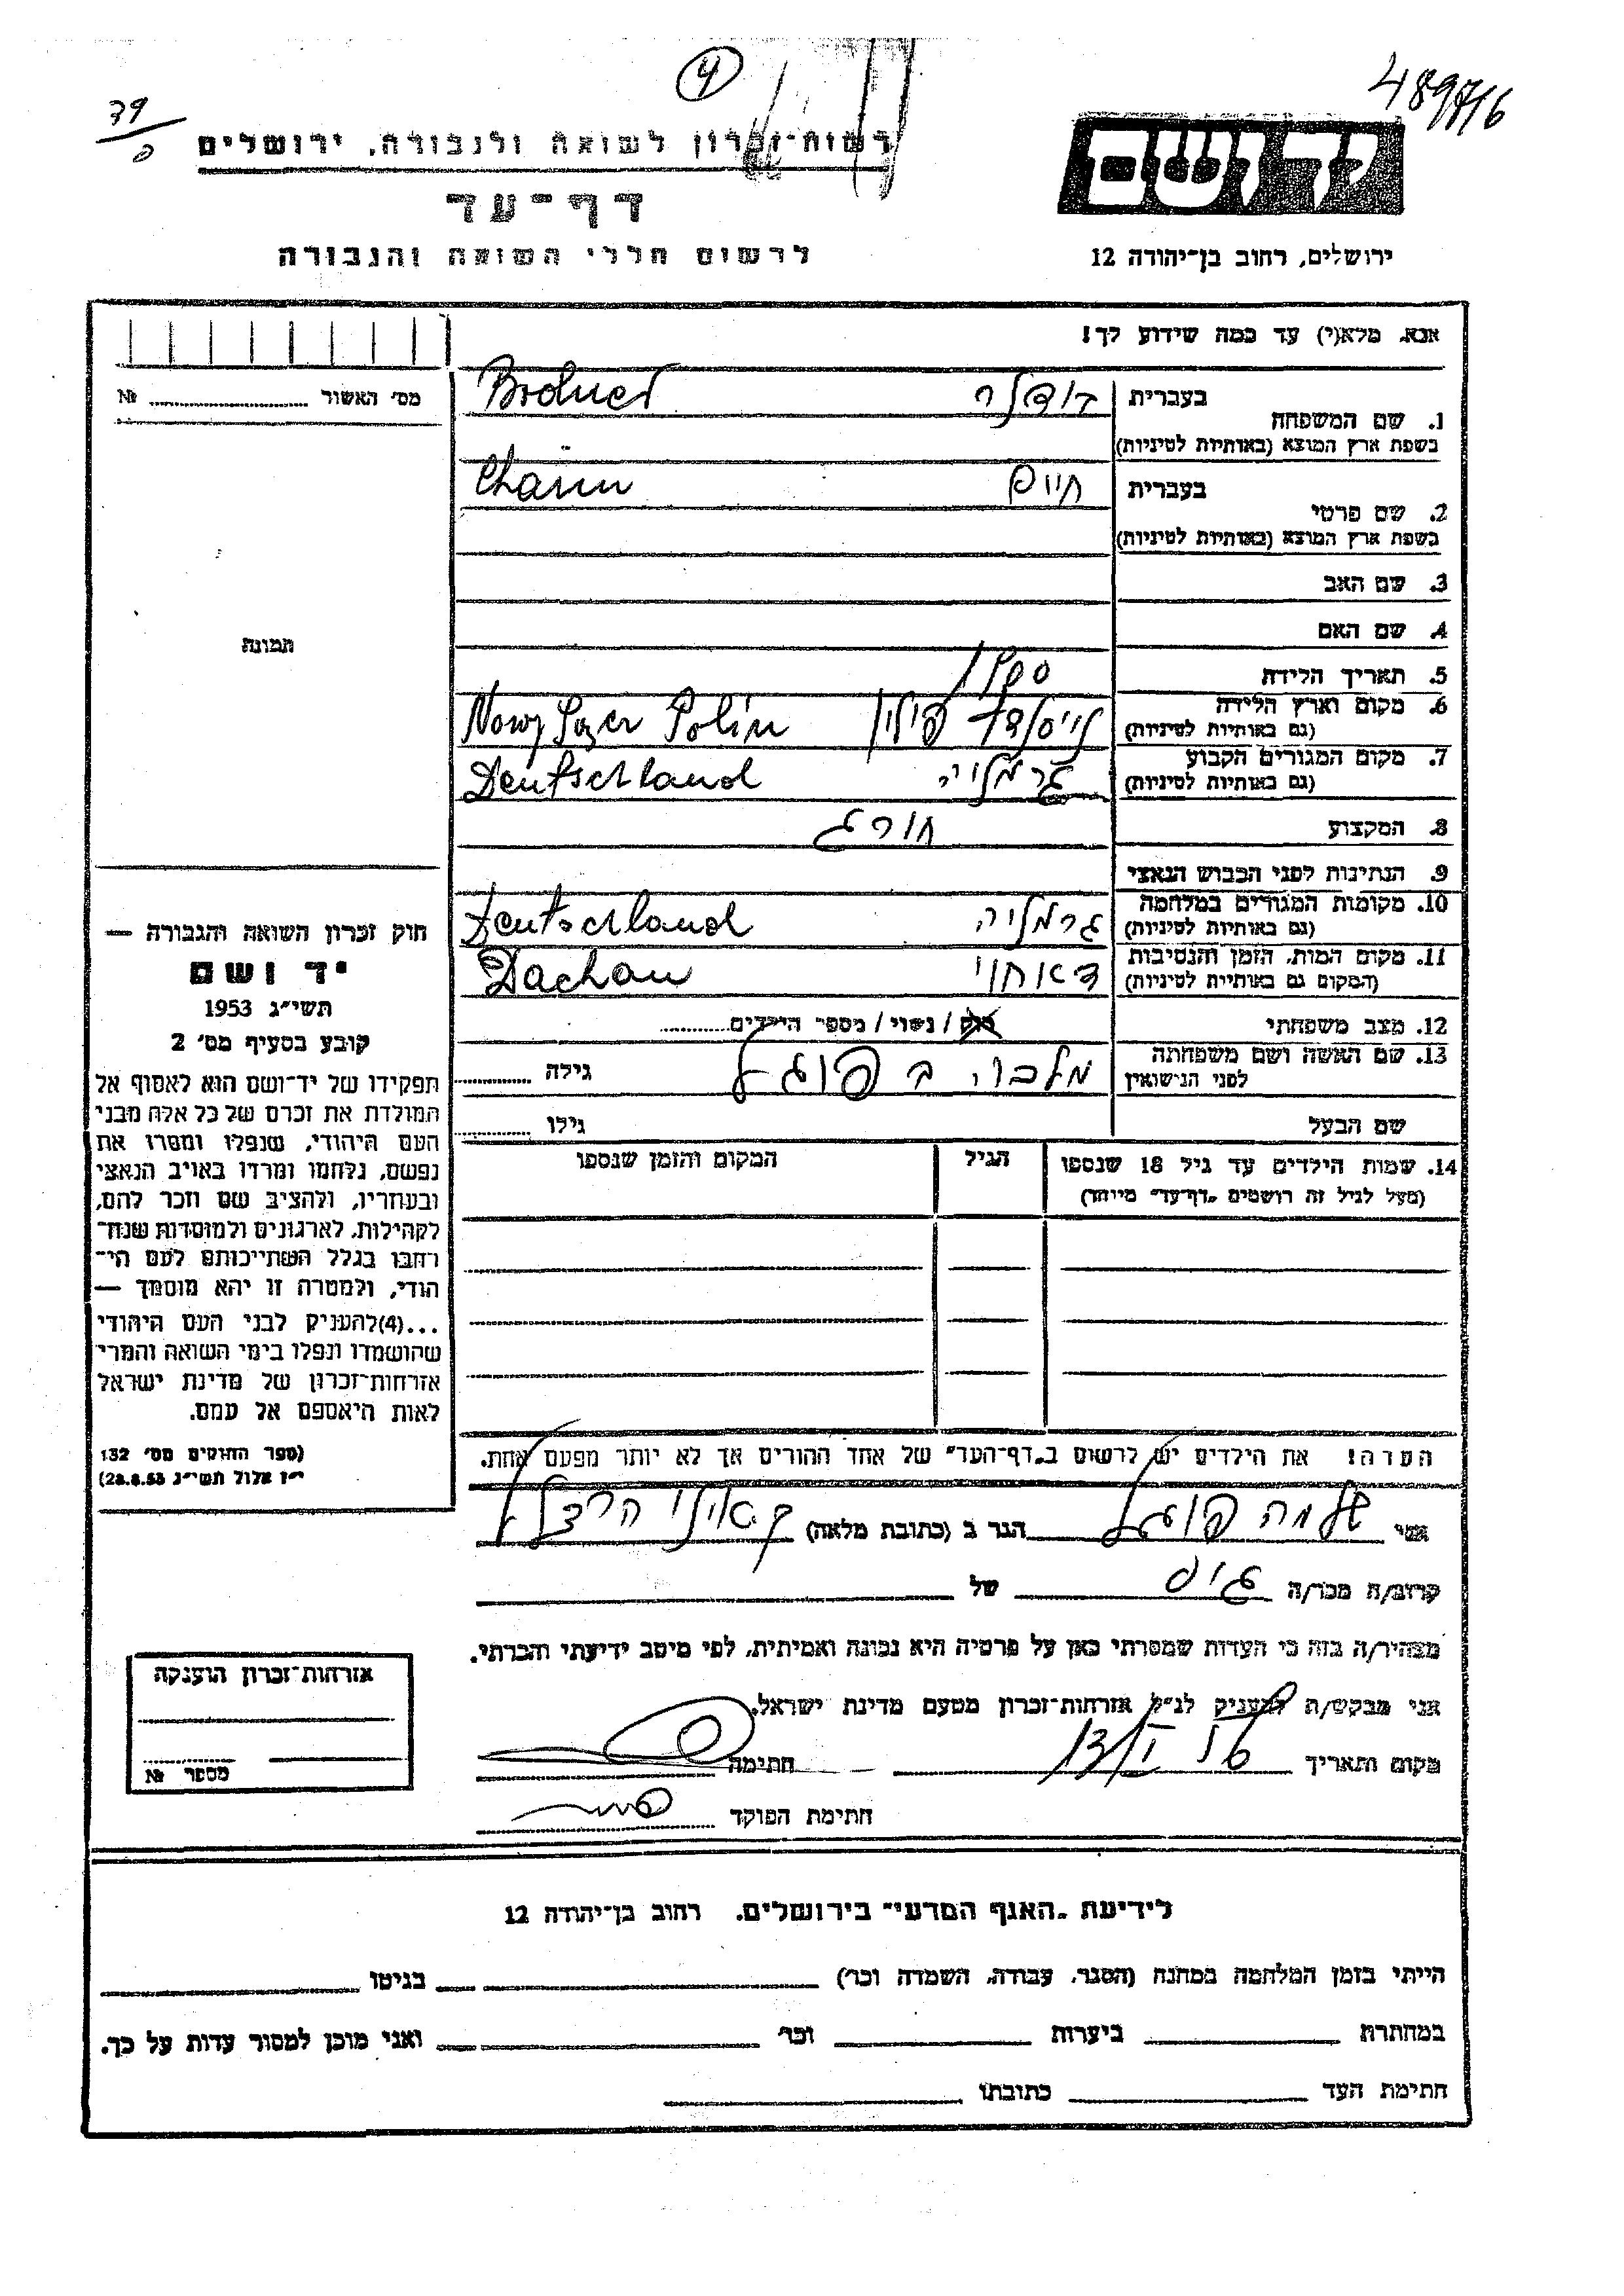 4
489716
79
רשות-זכרון לשואה ולגבורה, ירושלים
דף-עד
לרשום חללי השואה והגבורה
יד ושם
ירושלים, רחוב בן-יהודה 12
אנא, מלא(י) עד כמה שידוע לך!
מס׳ האשור № ........
תמונה
1. שם המשפחה בעברית
Brodner
בשפת ארץ המוצא (באותיות לטיניות)
2. שם פרטי בעברית חיים Chaim
בשפת ארץ המוצא (באותיות לטיניות)
3. שם האב
4. שם האם
5. תאריך הלידה 1900
6. מקום וארץ הלידה (גם באותיות לטיניות) פוילין Nowy Sazer Polin
7. מקום המגורים הקבוע (גם באותיות לטיניות) גרמניה Deutschland
8. המקצוע
9. הנתינות לפני הכבוש הנאצי
10. מקומות המגורים במלחמה (גם באותיות לטיניות) גרמניה Deutschland
11. מקום המות, הזמן והנסיבות (המקום גם באותיות לטיניות) דאחוי Dachau
12. מצב משפחתי רווק / נשוי / מספר הילדים........
13. שם האשה ושם משפחתה לפני הנישואין מלכה פוגל גילה ........
שם הבעל גילו ........
14. שמות הילדים עד גיל 18 שנספו הגיל המקום והזמן שנספו
(מעל לגיל זה רושמים „דף-עד״ מיוחד)
הערה! את הילדים יש לרשום ב„דף-העד״ של אחד ההורים אך לא יותר מפעם אחת.
חוק זכרון השואה והגבורה —
יד ושם
תשי״ג 1953
קובע בסעיף מס׳ 2
תפקידו של יד-ושם הוא לאסוף אל
המולדת את זכרם של כל אלה מבני
העם היהודי, שנפלו ומסרו את
נפשם, נלחמו ומרדו באויב הנאצי
ובעוזריו, ולהציב שם וזכר להם,
לקהילות, לארגונים ולמוסדות שנח-
רבו בגלל השתייכותם לעם הי-
הודי, ולמטרה זו יהא מוסמך —
...(4)להעניק לבני העם היהודי
שהושמדו ונפלו בימי השואה והמרי
אזרחות-זכרון של מדינת ישראל
לאות היאספם אל עמם.
(ספר החוקים מס׳ 132
י״ז אלול תשי״ג 28.8.53)
אני שלמה פוגל הגר ב (כתובת מלאה)
קרוב/ה מכר/ה גיס של
מצהיר/ה בזה כי העדות שמסרתי כאן על פרטיה היא נכונה ואמיתית, לפי מיטב ידיעתי והכרתי.
אני מבקש/ת להעניק לנ״ל אזרחות-זכרון מטעם מדינת ישראל.
מקום ותאריך חתימה
חתימת הפוקד
אזרחות-זכרון הוענקה
מספר №
לידיעת „האגף המדעי״ בירושלים, רחוב בן-יהודה 12
הייתי בזמן המלחמה במחנה (הסגר, עבודה, השמדה וכו׳) בגיטו
במחתרת ביערות וכו׳ ואני מוכן למסור עדות על כך.
חתימת העד כתובתו